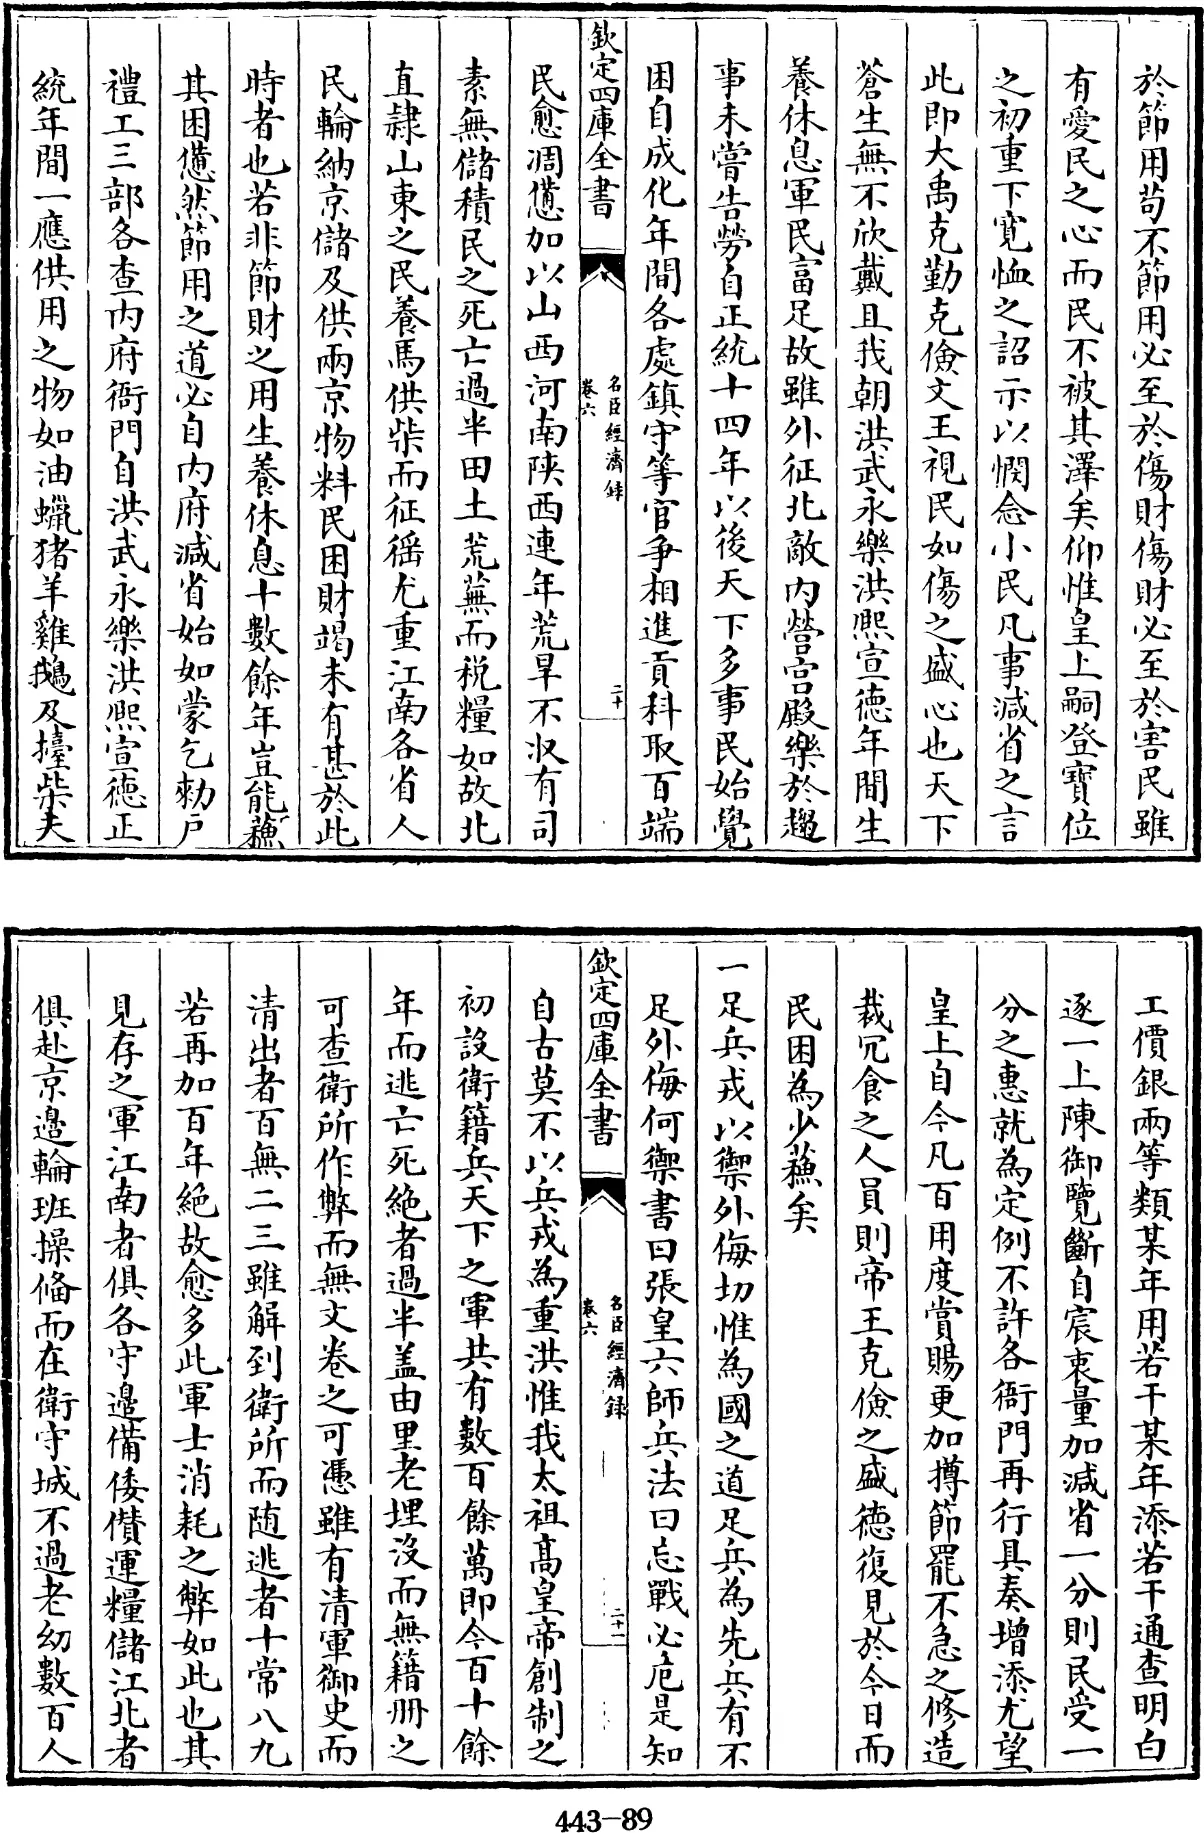 於節用苟不節用必至於傷財傷財必至於害民雖
有愛民之心而民不被其澤矣仰惟皇上嗣登寶位
之初重下寛恤之詔示以憫念小民凡事減省之言
此即大禹克勤克儉文王視民如傷之盛心也天下
蒼生無不欣戴且我朝洪武永樂洪熙宣德年間生
養休息軍民富足故雖外征北敵内營宫殿樂於趨
事未嘗告勞自正統十四年以後天下多事民始覺
困自成化年間各處鎮守等官爭相進貢科取百端
欽定四庫全書
名臣經濟録
卷六
二十
民愈凋憊加以山西河南陜西連年荒旱不收有司
素無儲積民之死亡過半田土荒蕪而税糧如故北
直隷山東之民養馬供柴而征徭尤重江南各省人
民輪納京儲及供兩京物料民困財竭未有甚於此
時者也若非節財之用生養休息十數餘年豈能蘓
其困憊然節用之道必自内府減省始如蒙乞勅户
禮工三部各查内府衙門自洪武永樂洪熙宣德正
統年間一應供用之物如油蠟猪羊雞鵝及擡柴夫
工價銀兩等類某年用若干某年添若干通查明白
逐一上陳御覽斷自宸衷量加減省一分則民受一
分之惠就為定例不許各衙門再行具奏增添尤望
皇上自今凡百用度賞賜更加撙節罷不急之修造
裁冗食之人員則帝王克儉之盛德復見於今日而
民困為少蘓矣
一足兵戎以禦外侮切惟為國之道足兵為先兵有不
足外侮何禦書曰張皇六師兵法曰忘戰必危是知
欽定四庫全書
名臣經濟録
卷六
二十一
自古莫不以兵戎為重洪惟我太祖髙皇帝創制之
初設衛籍兵天下之軍共有數百餘萬即今百十餘
年而逃亡死絶者過半盖由里老埋沒而無籍冊之
可查衛所作弊而無文卷之可憑雖有清軍御史而
清出者百無二三雖解到衛所而随逃者十常八九
若再加百年絶故愈多此軍士消耗之弊如此也其
見存之軍江南者俱各守邉備倭儹運糧儲江北者
俱赴京邉輪班操偹而在衛守城不過老幼數百人
443-89